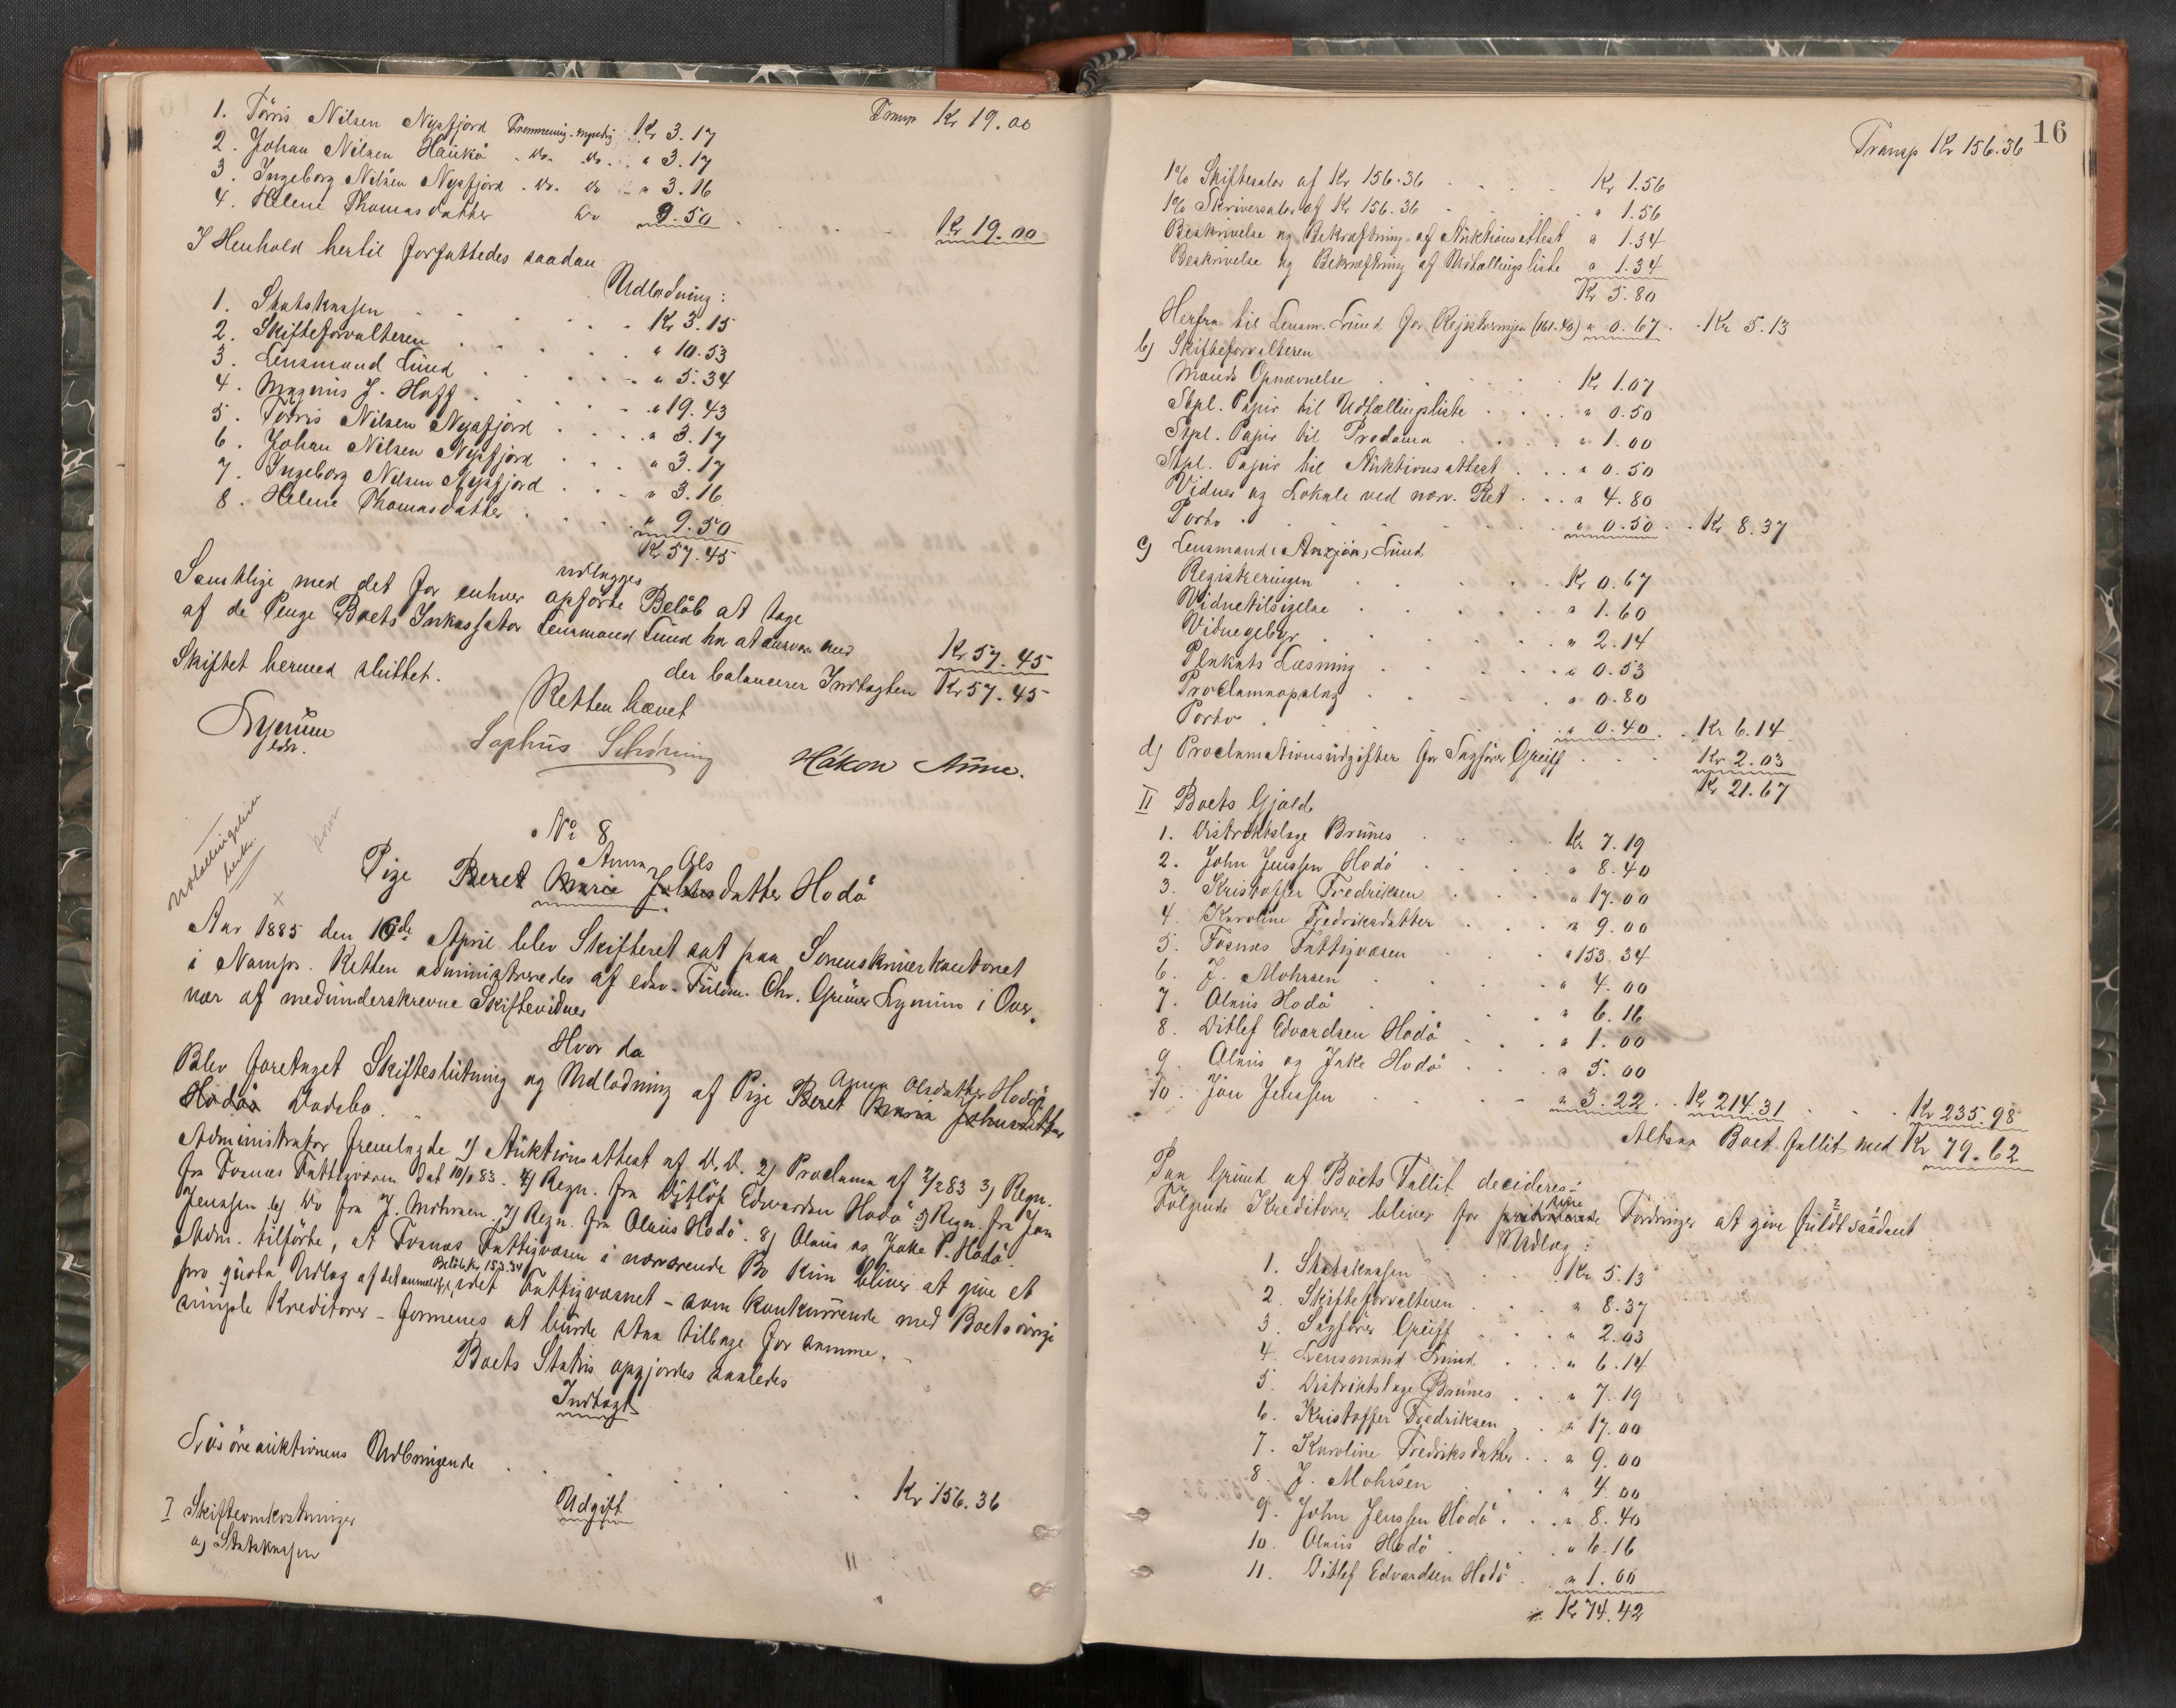 Transp Kr 19.00
1. Törris Nilsen Nypfjord Fremmening-myndig Kr 3.17
2. Johan Nilsen Haukö . do. do. " 3.17
3. Ingeborg Nilsen Nypfjord . do. do " 3.16
4. Helene Thomasdatter do 9.50 Kr 19.00
I Henhold hertil forfattedes saadan
Udlodning:
1. Statskassen Kr 3.15
2. Skifteforvalteren " 10.53
3. Lensmand Lund " 5.34
4. Magnus J. Hoff " 19.43
5. Törris Nilsen Nypfjord " 3.17
6. Johan Nilsen Nypfjord " 3.17
7. Ingeborg Nilsen Nypfjord " 3.16
8. Helene Thomasdatter " 9.50
Kr 57.45
udlægges
Samtlige med det for enhver opförte Belöb at tage
af de Penge Boets Inkassator Lensmand Lund har at ansvare med Kr 57.45
der balancerer Indtægten Kr 57.45
Skiftet hermed sluttet.
Retten hævet
Lysrum
edsv.
Sophus Schöning Håkon Aune.
Udlodningsliste
berk.
No 8
Anna Ols
Pige Beret Marie Johnsdatter Hodö
Aar 1885 den 16de April blev Skifteret sat paa Sorenskriverkontoret
i Namsos. Retten administreredes af edsv. Fuldm. Chr. Grüner Lysrum i Over.
vær af medunderskrevne Skiftevidner
Hvor da
Anna Olsdatter Hodös
Blev foretaget Skifteslutning og Udlodning af Pige Beret Maria Johnsdatter
Hodös Dödsbo.
Administrator fremlagde 1) Auktionsattest af D. D. 2) Proclama af 7/2 83 3) Regn.
fra Fosnæs Fattigvæsen dat 10/1 83. 4) Regn. fra Ditlöf Edvardsen Hodö 5) Regn. fra Jon
Jenssen 6) Do fra J. Mohrsen 7) Regn. fra Olaus Hodö. 8) Olaus og Jake P. Hodö.
Adm. tilförte, at Fosnæs Fattigvæsen i nærværende Bo kun bliver at give et
Belöb Kr 153.34
pro qvota Udlæg af det anmeldte, idet Fattigvæsnet – som konkurrende med Boets övrige
simple Kreditorer – formenes at burde staa tilbage for samme.
Boets Status opgjordes saaledes
Indtægt
Lösöreauktionens Udbringende Kr 156.36
Udgift
I Skifteomkostninger
a) Statskassen
16
Transp Kr 156.36
1% Skiftesalær af Kr 156.36 Kr 1.56
1% Skriversalær af Kr 156.36 " 1.56
Beskrivelse og Bekræftning af Auktionsattest " 1.34
Beskrivelse og Bekræftning af Udtællingsliste " 1.34
Kr 5.80
Herfra til Lensm. Lund for Rejsteringen (161.40) " 0.67 Kr 5.13
b) Skifteforvalteren
Mænds Opnævnelse Kr 1.07
Stpl. Papir til Udtællingsliste " 0.50
Stpl. Papir til Proclama " 1.00
Stpl. Papir til Auktionsattest " 0.50
Vidner og Lokale ved nærv. Ret " 4.80
Porto " 0.50 Kr 8.37
c) Lensmand Lund
Registreringen Kr 0.67
Vidnetilsigelse " 1.60
Vidnegebyr " 2.14
Plakats Læsning " 0.53
Proclamaopslag " 0.80
Porto " 0.40 Kr 6.14
d) Proclamationsudgifter for Sagförer Greiff Kr 2.03
Kr 21.67
II Boets Gjæld
1. Distriktslæge Brünes Kr 7.19
2. John Jenssen Hodö " 8.40
3. Kristoffer Fredriksen " 17.00
4. Karoline Fredriksdatter " 9.00
5. Fosnæs Fattigvæsen " 153.34
6. J. Mohrsen " 4.00
7. Olaus Hodö " 6.16
8. Ditlef Edvardsen Hodö " 1.00
9. Olaus og Jake Hodö " 5.00
10. Jon Jenssen " 3.22 Kr 214.31 Kr 235.98
Altsaa Boet fallit med Kr 79.62
Paa Grund af Boets Fallit decideres:
Fölgende Kreditorer bliver for Fordringer at give fuldt saadant
Udlæg:
1. Statskassen Kr 5.13
2. Skifteforvalteren " 8.37
3. Sagförer Greiff " 2.03
4. Lensmand Lund " 6.14
5. Distriktslæge Brünes " 7.19
6. Kristoffer Fredriksen " 17.00
7. Karoline Fredriksdatter " 9.00
8. J. Mohrsen " 4.00
9. John Jenssen Hodö " 8.40
10. Olaus Hodö " 6.16
11. Ditlef Edvardsen Hodö " 1.00
Kr 74.42